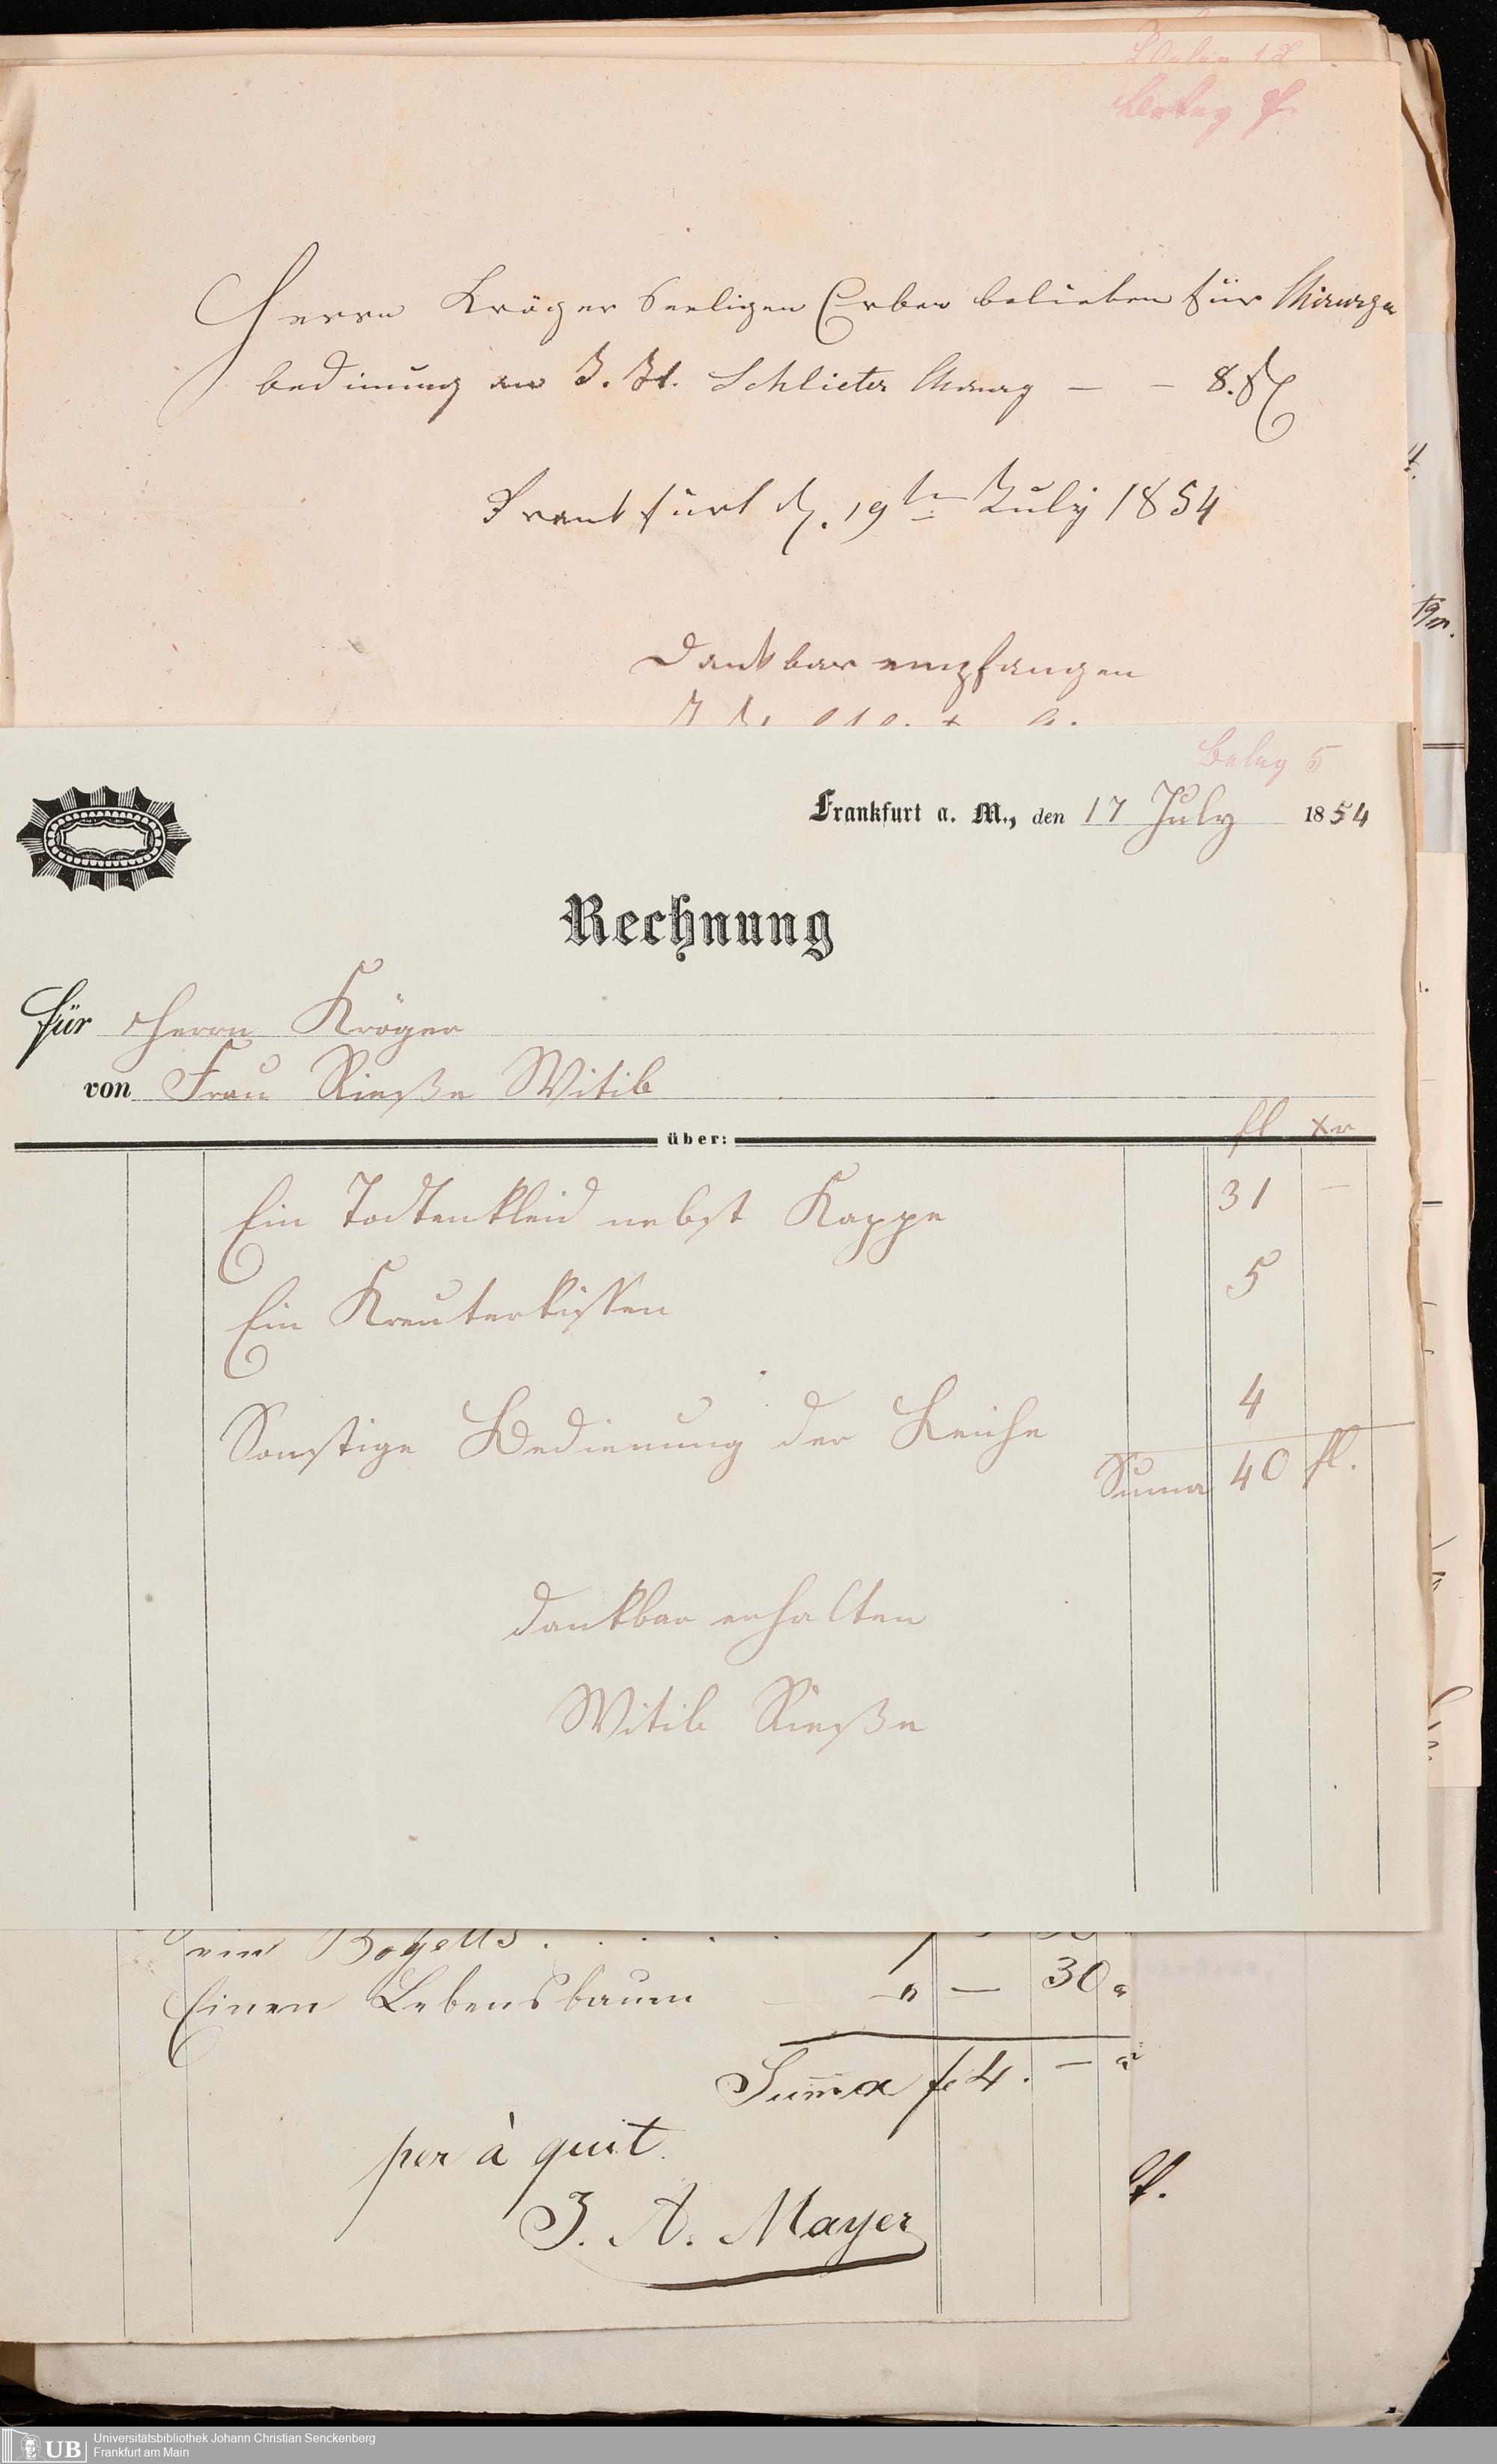 Beleg
Herrn Kröger Seeligen Erben belieben für Chirurgen
bedinung an J. H. Schlieter Chirurg — — 8. f
Frankfurt d. 19ten July 1854
Dankbar empfangen
Beleg 5
Frankfurt a. M., den 17 July 1854
Rechnung
für Herrn Kröger
von Frau Rieße Witib
über: fl xr
Ein Todtenkleid nebst Kappe 31 —
Ein Kreuterkissen 5
Sonstige Bedienung der Leiche 4
Suma 40 fl.
dankbar erhalten
Witib Rieße
ein Bogetts . . . .
Einen Lebensbaum — " — 30 "
Summa f 4. — "
per à quit.
J. A. Mayer
UB Universitätsbibliothek Johann Christian Senckenberg
Frankfurt am Main